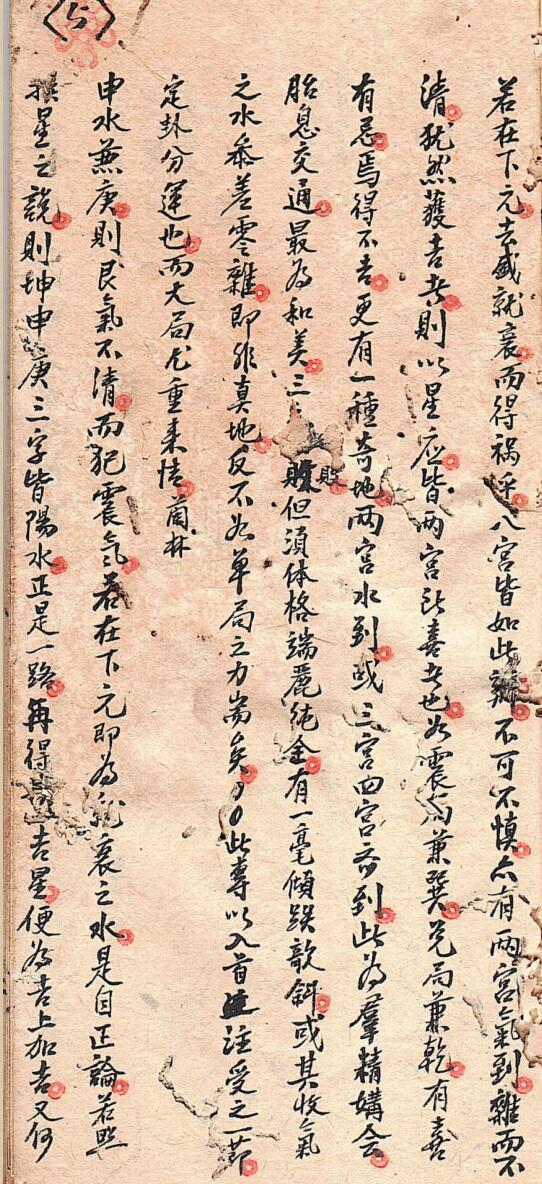 5
若在下元去盛就衰而得禍乎八宮皆如此辨不可不慎亦有两宮氣到雜而不
清犹然獲吉者則以星应皆两宮所喜者也如震局兼巽兌局兼乾有喜
有忌焉得不吉更有一種奇地两宮水到或三宮四宮齐到此為羣精媾会
胎息交通最為和美三敗但須体格端麗純全有一毫傾跌欹斜或其收氣
之水叅差零雜即非真地反不如單局之力耑矣此專以入首注受之一節
定卦分運也而大局尤重来情
申水兼庚則艮氣不清而犯震气若在下元即為就衰之水是自正論若照
挨星之說則坤申庚三字皆陽水正是一路再得吉星便為吉上加吉又何